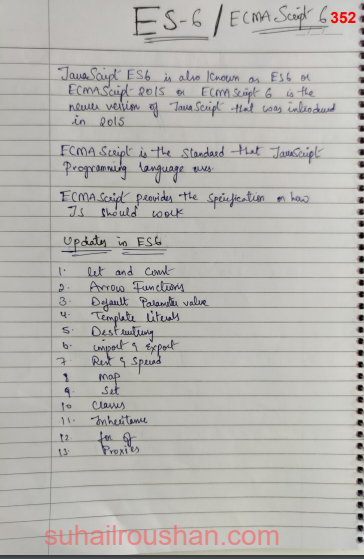 ES-6 / ECMA Script 6 352
JavaScript ES6 is also known as ES6 or
ECMAScript 2015 or ECMAScript 6 is the
newer version of JavaScript that was introduced
in 2015
ECMAScript is the standard that JavaScript
Programming language uses.
ECMAScript provides the specification on how
JS should work
Updates in ES6
1. let and Const
2. Arrow Functions
3. Default Parameter value
4. Template literals
5. Destructuring
6. import & Export
7. Rest & Spread
8 map
9. Set
10 Classes
11. Inheritance
12 for of
13. Proxies
suhailroushan.com